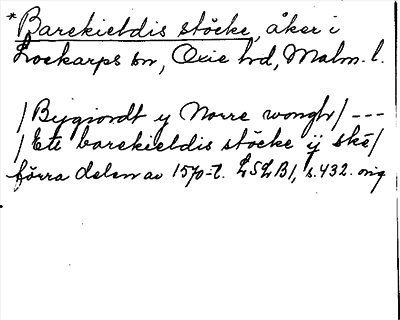 *Barekieldis stöcke, åker i
Lockarps sn, Oxie hd, Malm. l.
/Bygiordt y Norre wongh/ ---
/Ett barekieldis stöcke ij ske/
förra delen av 1570-t. LSLB1, s. 432. orig